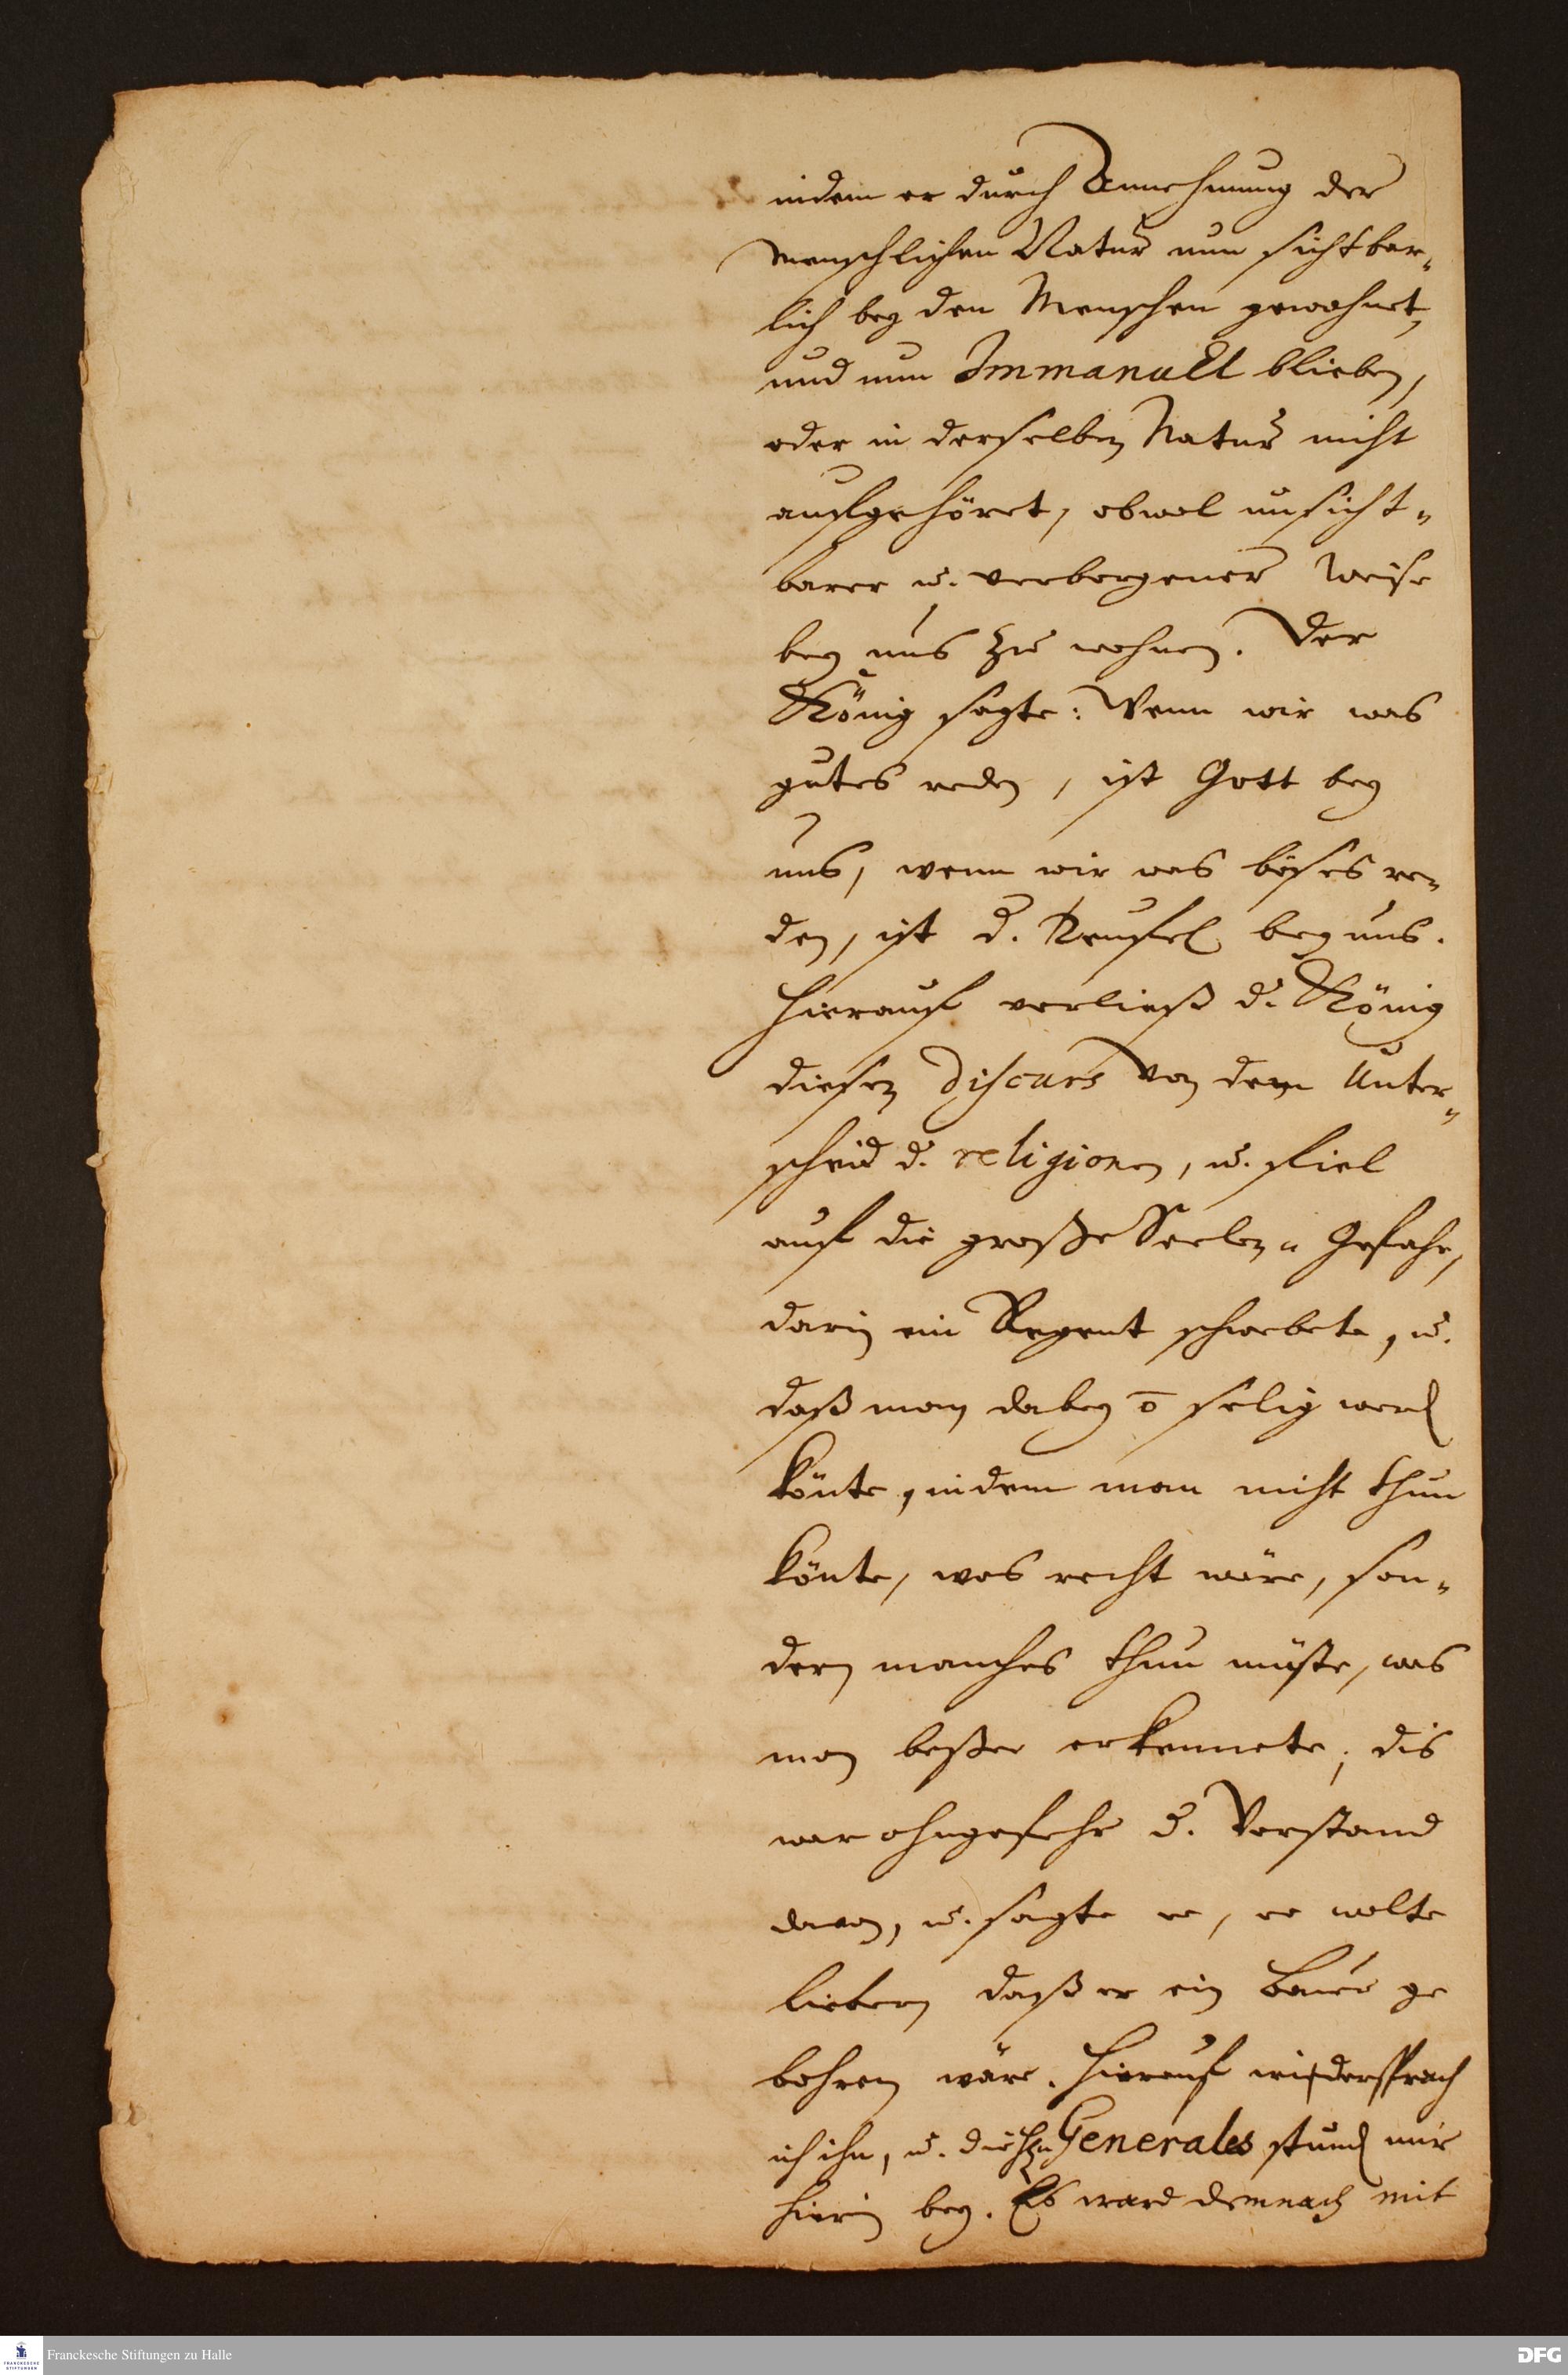 indem er durch Annehmung der
menschlichen Natur nun sichtbar-
lich bey den Menschen gewohnet,
und nun ImmanuEl blieben,
oder in derselben Natur nicht
aufgehöret, obwol unsicht-
barer u. verborgener Weise
bey uns zu wohnen. Der
König sagte: Wenn wir was
gutes reden, ist Gott bey
uns, wenn wir was böses re-
den, ist d. Teufel bey uns.
Hierauf verließ d. König
diesen Discurs von dem Unter-
scheid d. religionen, u. fiel
auf die große Seelen-Gefahr,
darin ein Regent schwebete, u.
daß man dabey o̅ selig werd
könte, indem man nicht thun
könte, was recht wäre, son-
dern manches thun müste, was
man beßer erkennete; dis
war ohngefehr d. Verstand
davon, u. sagte er, er wolte
liebern daß er ein Bauer ge
bohren wäre. Hierauf wiedersprach
ich ihn, u. die Hn Generales stund mir
hierin bey. Es ward demnach mit
Franckesche Stiftungen zu Halle
FRANCKESCHE
STIFTUNGEN
DFG